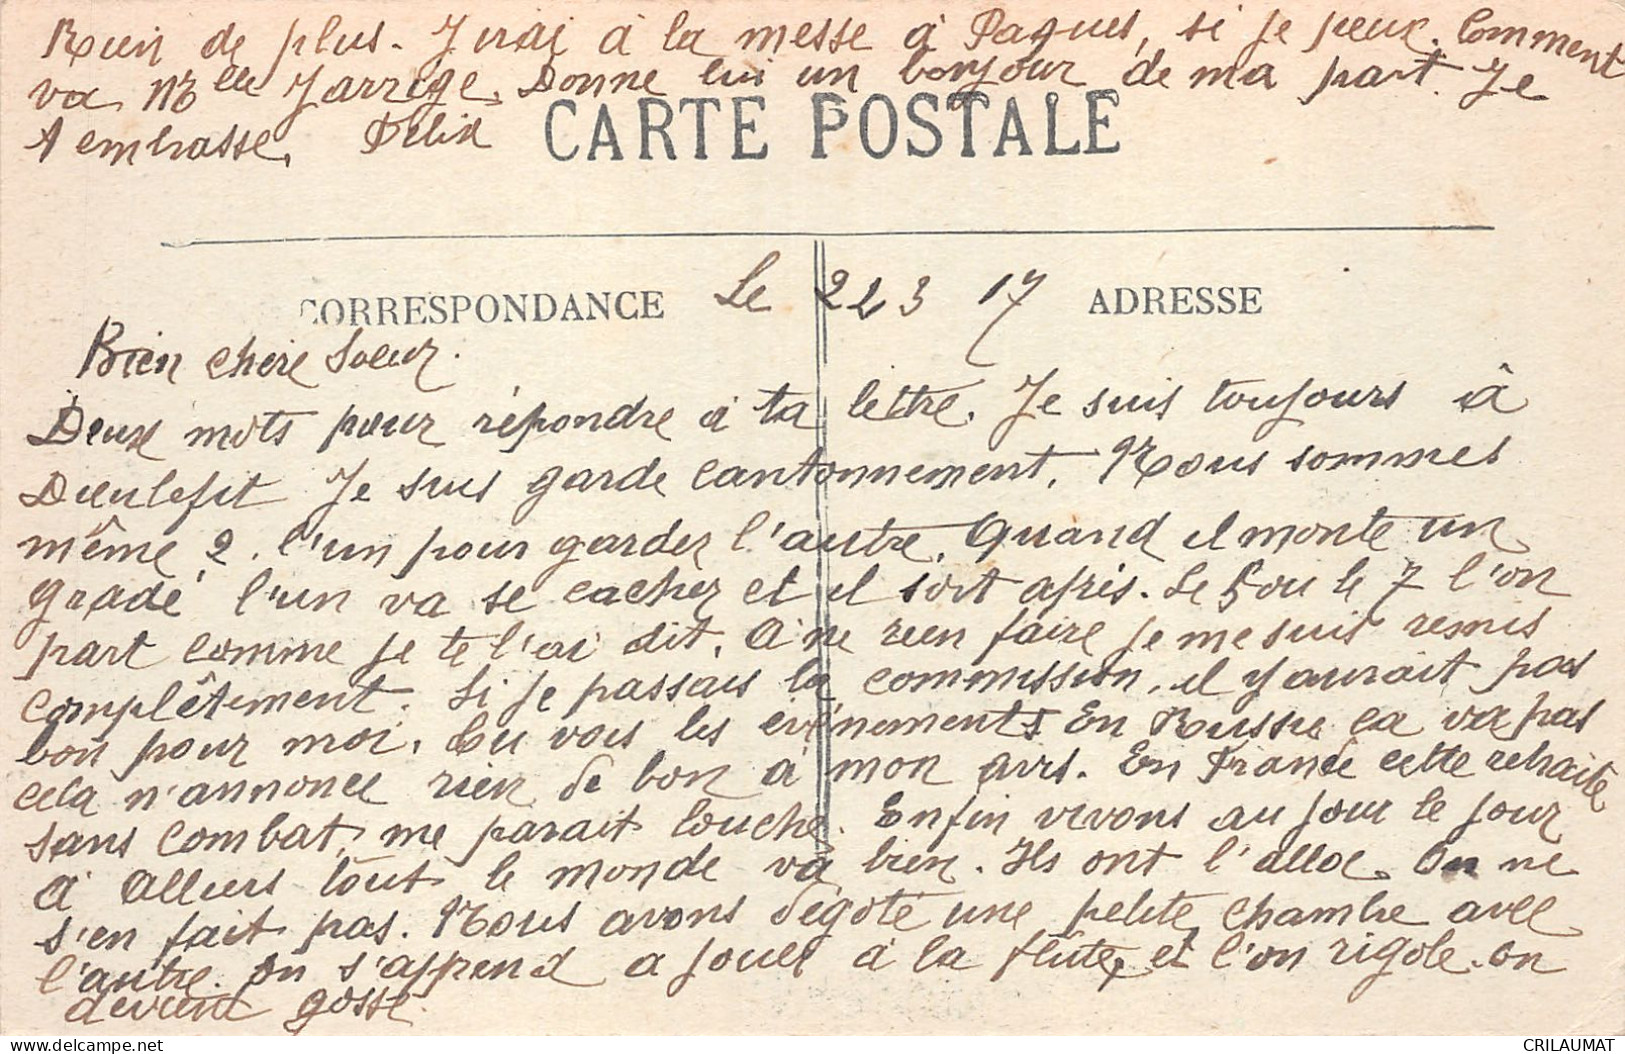 Rien de plus. J'irai à la messe à Paques, si je peux. Comment
va Mlle Jarrige. Donne lui un bonjour de ma part. Je
t embrasse. Félix
CARTE POSTALE
CORRESPONDANCE Le 22 3 17 ADRESSE
Bien chère Soeur.
Deux mots pour répondre à ta lettre. Je suis toujours à
Dieulefit Je suis garde cantonnement. Nous sommes
même 2. l'un pour garder l'autre. Quand il monte un
gradé l'un va se cacher et il sort après. Le 5 ou le 7 l'on
part comme je te l'ai dit. A ne rien faire je me suis remis
complêtement. Si je passais la commission, il y aurait pas
bon pour moi. Tu vois les événements En Russie ca va pas
cela n'annonce rien de bon à mon avis. En France cette retraite
sans combat, me parait louche. Enfin vivons au jour le jour
A Alliers tout le monde va bien. Ils ont l'alloc. On ne
s'en fait pas. Nous avons dégoté une petite chambre avec
l'autre. On s'apprend a jouer à la flûte, et l'on rigole. on
devient gosse.
CRILAUMAT
delcampe.net